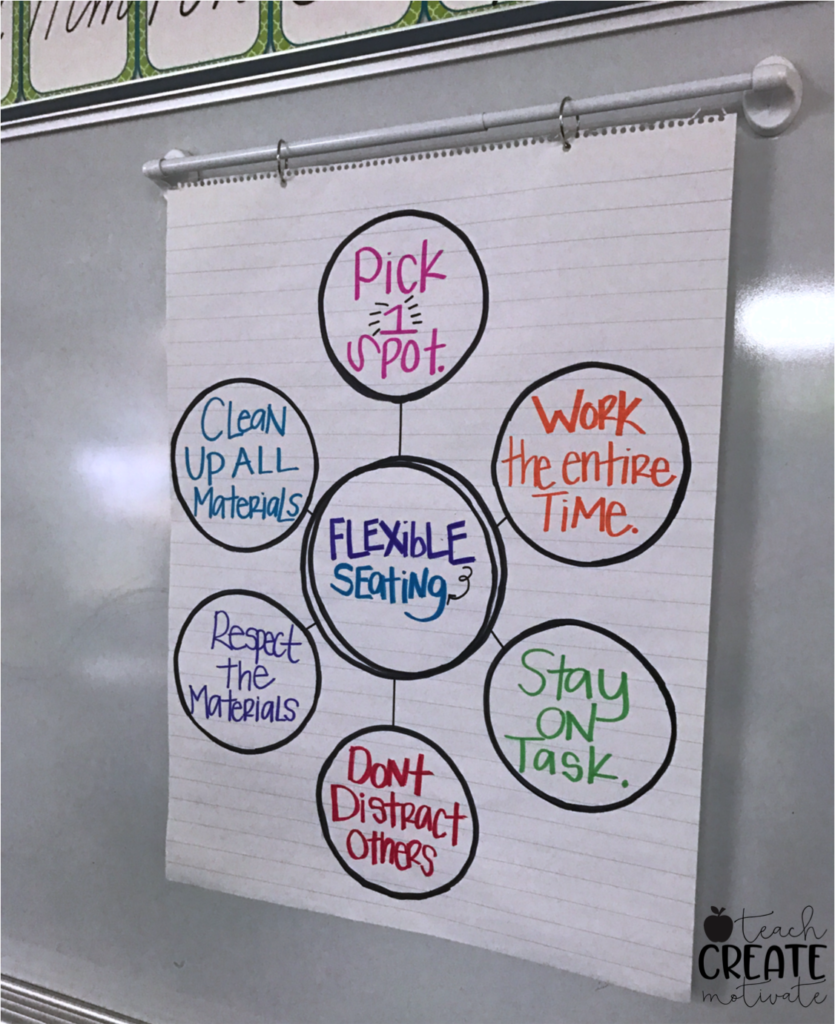 Pick
1
Spot.
Work
the entire
Time.
Clean
Up All
Materials
Flexible
Seating
Respect
the
Materials
Stay
on
Task.
Dont
Distract
Others
teach
CREATE
motivate